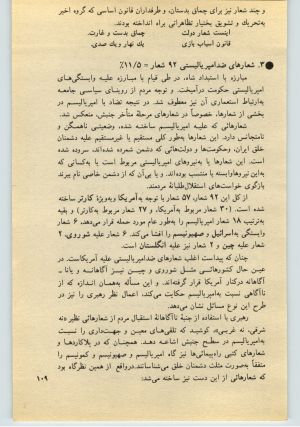 و چند شعار نیز برای چماق بدستان، و طرفداران قانون اساسی که گروه اخیر
به‌تحریك و تشویق بختیار تظاهراتی براه انداخته بودند.
اینست شعار دولت چماق بدست و غارت.
قانون اسباب بازی یك نهار و یك صدی.
●۳. شعارهای ضدامپریالیستی ۹۲ شعار = ۱۱/۵٪
مبارزه با استبداد شاه، در طی قیام با مبارزه علیه وابستگی‌های
امپریالیستی حکومت درآمیخت. و توجه مردم از روبنای سیاسی جامعه
به‌ارتباط استعماری آن نیز معطوف شد. در نتیجه تضاد با امپریالیسم در
بخشی از شعارها، خصوصاً در شعارهای مرحلۀ متأخر جنبش، منعکس شد.
شعارهائی که علیه امپریالیسم ساخته شده، وضعیتی ناهمگن و
نامتجانس دارد. این شعارها به‌طور کلی مستقیم یا غیرمستقیم علیه دشمنان
خلق ایران، وحکومت‌ها و دولت‌هائی که دشمن شمرده شده‌اند، سروده شده
است. این شعارها یا به‌نیروهای امپریالیستی مربوط است یا به‌کسانی که
به‌این نیروهاوابسته یا منتسب بوده‌اند. و یا بی‌آن که از دشمن خاصی نام ببرند
بازگوی خواست‌های استقلال‌طلبانۀ مردمند.
از کل این ۹۲ شعار، ۵۷ شعار با توجه به‌آمریکا وبه‌ویژۀ کارتر ساخته
شده است. (۳۰ شعار مربوط به‌آمریکا، و ۲۷ شعار مربوط به‌کارتر) و بقیه
به‌ترتیب ۱۸ شعار امپریالیسم را به‌طور عام مورد حمله قرار می‌دهد. ۶ شعار
وبستگی به‌اسرائیل و صهیونیسم را افشا می‌کند. ۶ شعار علیه شوروی، ۲
شعار علیه چین و ۲ شعار نیز علیه انگلستان است.
چنان که پیداست اغلب شعارهای ضدامپریالیستی علیه آمریکاست. در
عین حال کشورهائی مثل شوروی و چین نیز آگاهانه و یانا ـ
آگاهانه درکنار آمریکا قرار گرفته‌اند. و این مسأله به‌همان اندازه که از
ناآگاهی نسبت به‌امپریالیسم حکایت می‌کند، اعمال نظر رهبری را نیز در
طرح این نوع مسائل نشان می‌دهد.
رهبری با استفاده از جنبۀ ناآگاهانۀ استقبال مردم از شعارهائی نظیر «نه
شرقی، نه غربی»، کوشید که تلقی‌های معین و جهت‌داری را نسبت
به‌امپریالیسم در سطح جنبش اشاعه دهد. همچنان که در پلاکاردها و
شعارهای کتبی راه‌پیمائی‌ها نیز گاه امپریالیسم و صهیونیسم و کمونیسم را
متفقاً به‌صورت مثلث دشمنان خلق می‌شناساندند.درواقع از همین نظرگاه بود
که شعارهائی از این دست نیز ساخته می‌شد:
۱۰۹